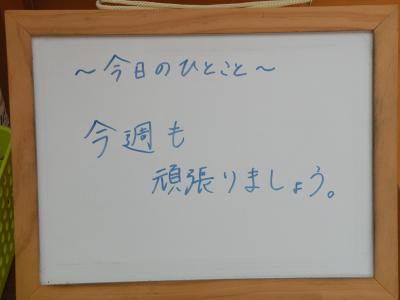 ～今日のひとこと～
今週も
頑張りましょう。